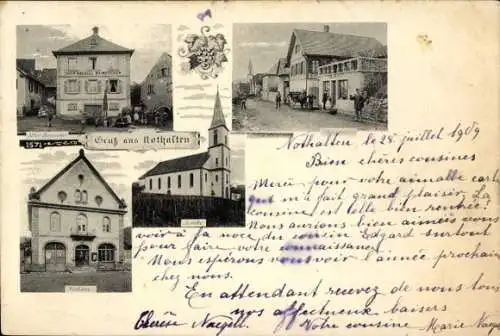 Gruß aus Nothalten
1571
Nothalten le 28 juillet 1909
Bien chères cousines
Merci pour votre aimable carte
qui m'a fait grand plaisir. La
cousine est-t-elle bien rentrée?
Nous aurions bien aimé vous
voir à la noce du cousin Edgard surtout
pour faire votre connaissance.
Nous espérons vous voir l'année prochaine
chez nous.
En attendant recevez de nous tous
nos affectueux baisers
Votre cousine Marie